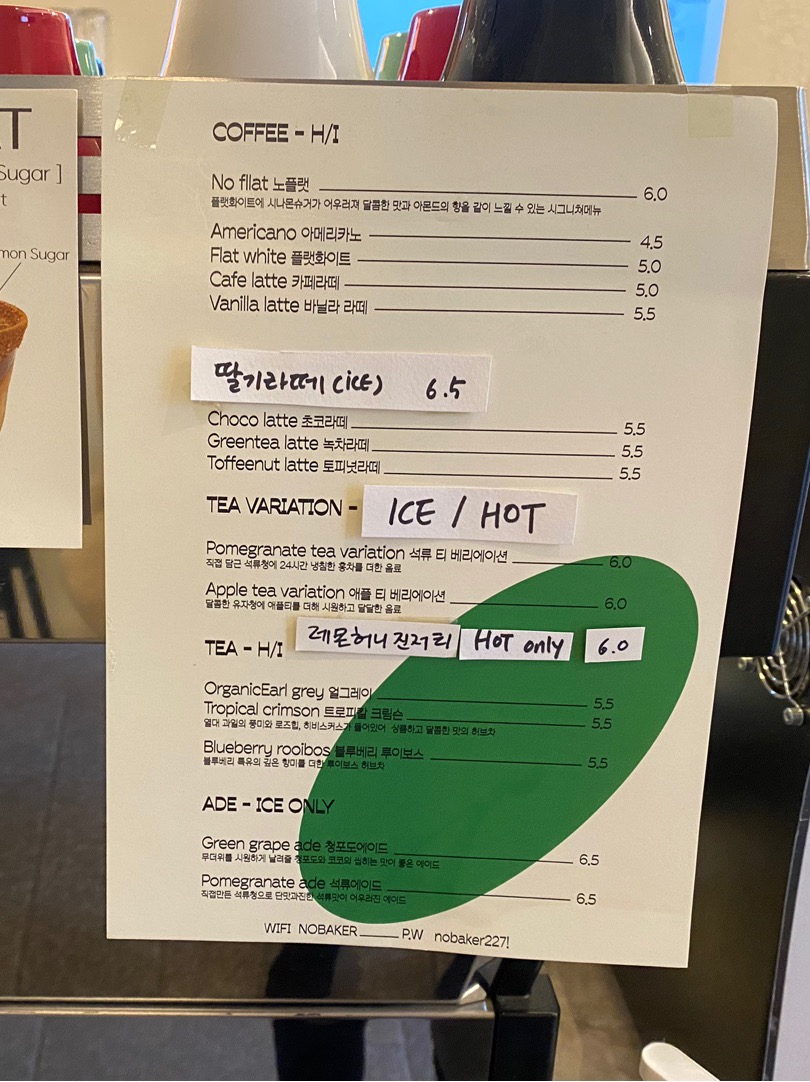 T
Sugar ]
t
mon Sugar
COFFEE - H/I
No fllat 노플랫 6.0
플랫화이트에 시나몬슈거가 어우러져 달콤한 맛과 아몬드의 향을 같이 느낄 수 있는 시그니쳐메뉴
Americano 아메리카노 4.5
Flat white 플랫화이트 5.0
Cafe latte 카페라떼 5.0
Vanilla latte 바닐라 라떼 5.5
딸기라떼 (ICE) 6.5
Choco latte 초코라떼 5.5
Greentea latte 녹차라떼 5.5
Toffeenut latte 토피넛라떼 5.5
TEA VARIATION - ICE / HOT
Pomegranate tea variation 석류 티 베리에이션 6.0
직접 담근 석류청에 24시간 냉침한 홍차를 더한 음료
Apple tea variation 애플 티 베리에이션 6.0
달콤한 유자청에 애플티를 더해 시원하고 달달한 음료
TEA - H/I 레몬허니진저티 HOT only 6.0
OrganicEarl grey 얼그레이 5.5
Tropical crimson 트로피칼 크림슨 5.5
열대 과일의 풍미와 로즈힙, 히비스커스가 들어있어 상큼하고 달콤한 맛의 허브차
Blueberry rooibos 블루베리 루이보스 5.5
블루베리 특유의 깊은 향미를 더한 루이보스 허브차
ADE - ICE ONLY
Green grape ade 청포도에이드 6.5
무더위를 시원하게 날려줄 청포도와 코코의 씹히는 맛이 좋은 에이드
Pomegranate ade 석류에이드 6.5
직접만든 석류청으로 단맛과진한 석류맛이 어우러진 에이드
WIFI NOBAKER P.W nobaker227!